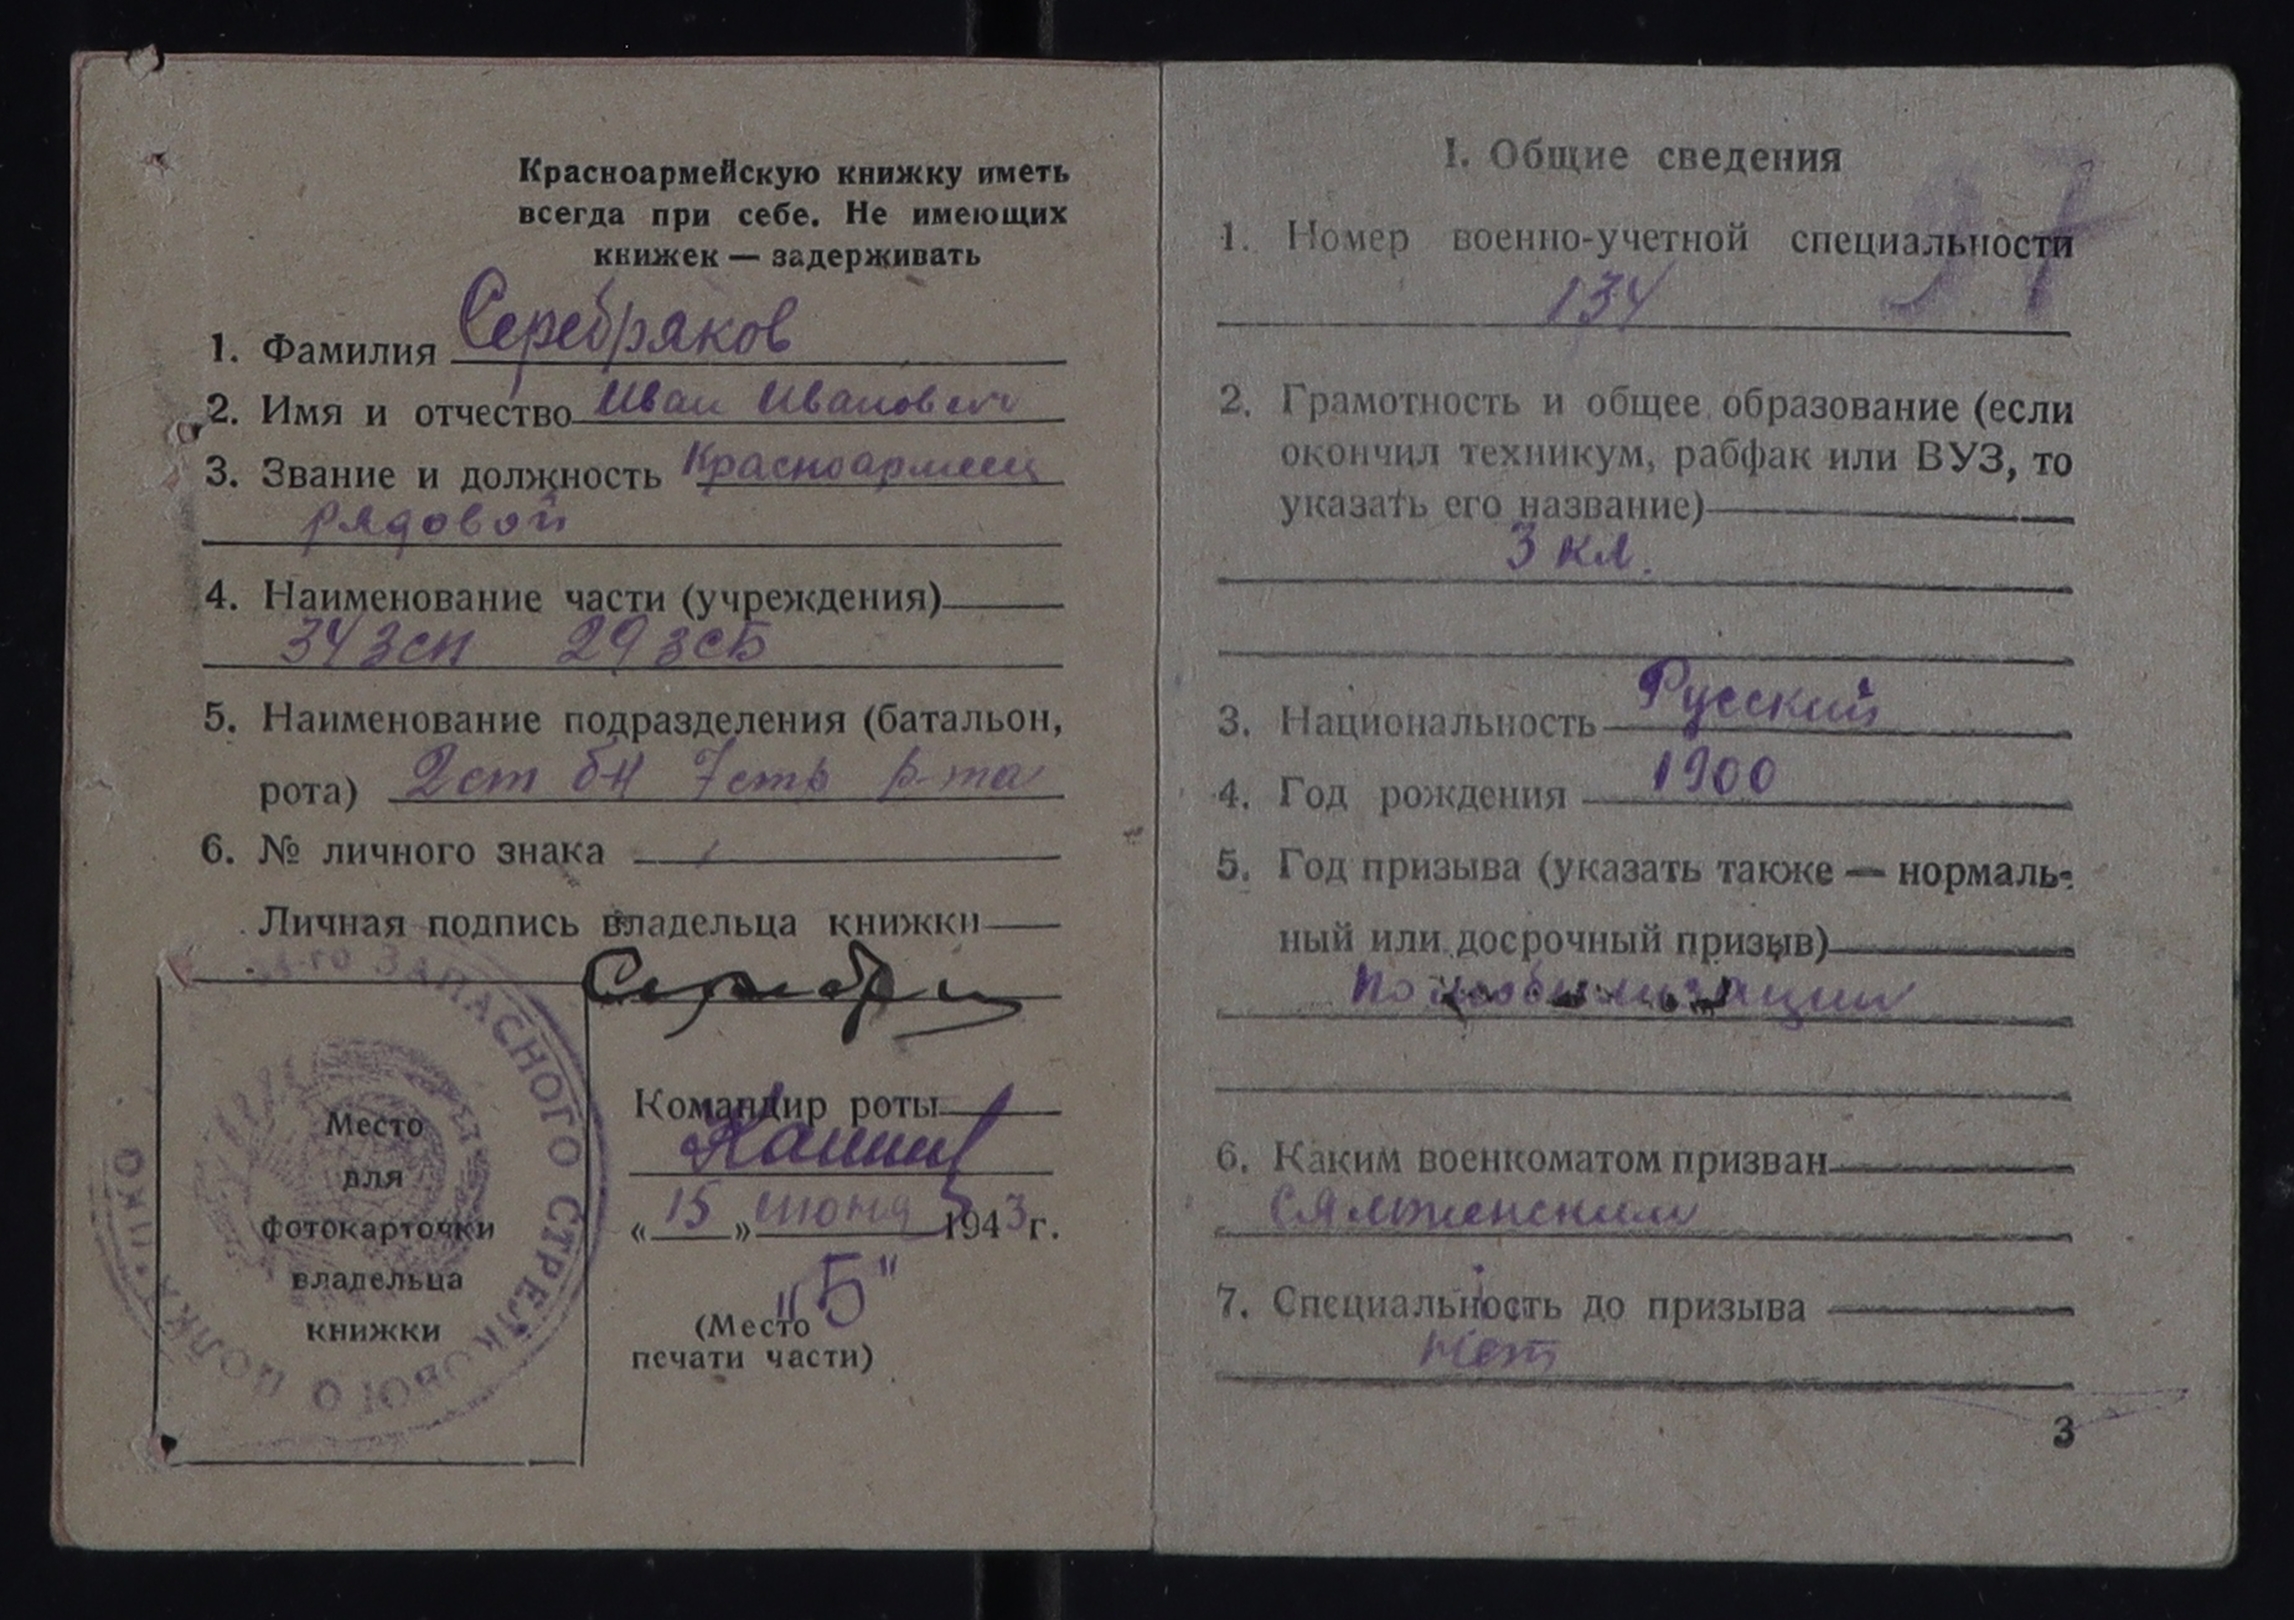 Красноармейскую книжку иметь
всегда при себе. Не имеющих
книжек — задерживать
1. Фамилия Серебряков
2. Имя и отчество Иван Иванович
3. Звание и должность Красноармеец
рядовой
4. Наименование части (учреждения)
34 зсп 29 зсб
5. Наименование подразделения (батальон,
рота) 2 ст бн 7 стр р-та
6. № личного знака
Личная подпись владельца книжки
Командир роты
« 15 » июня 1943 г.
"Б"
(Место
печати части)
Место
для
фотокарточки
владельца
книжки
ЗАПАСНОГО СТРЕЛКОВОГО ПОЛКА • НКО
I. Общие сведения
1. Номер военно-учетной специальности
134
2. Грамотность и общее образование (если
окончил техникум, рабфак или ВУЗ, то
указать его название)
3 кл.
3. Национальность Русский
4. Год рождения 1900
5. Год призыва (указать также — нормаль-
ный или досрочный призыв)
по мобилизации
6. Каким военкоматом призван
Сямженским
7. Специальность до призыва
нет
3